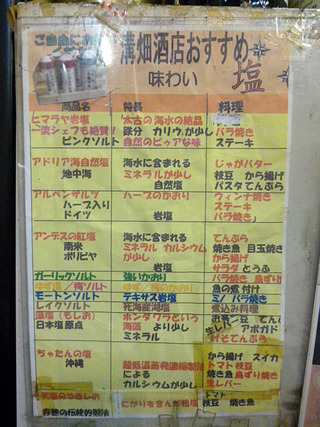 ご自由にお
溝畑酒店おすすめ
味わい 塩
商品名 特長 料理
ヒマラヤ岩塩 太古の海水の結晶
一流シェフも絶賛! 鉄分 カリウムが少し バラ焼き
ピンクソルト 自然のピュアな味 ステーキ
アドリア海自然塩 海水に含まれる じゃがバター
地中海 ミネラルが少し 枝豆 から揚げ
自然塩 パスタてんぷら
アルペンザルツ ハーブのかおり ウィンナ焼き
ハーブ入り ステーキ
ドイツ 岩塩 バラ焼き
アンデスの紅塩 海水に含まれる てんぷら
南米 ミネラル カルシウム 焼き魚 目玉焼き
ボリビヤ が少し から揚げ
岩塩 サラダ とうふ
ガーリックソルト 強いかおり バラ焼き 鳥ずり
ゆず塩/梅ソルト ゆず/梅のかおり 魚の煮付け
モートンソルト テキサス岩塩 ミノ バラ焼き
レイクソルト 死海湖塩 煮込み料理
藻塩(もしお) ホンダワラという おでん 豆 てん
日本塩原点 海藻 より少し 生レバー アボガド
ミネラル 何でもてんぷら
ちゃたんの塩 から揚げ スイカ
沖縄 超低温蒸発濃縮製法 トマト 枝豆
による 焼き魚 鳥ずり焼き
カルシウムが少し 生レバー
トマト
にがりを含んだ粗塩 枝豆 焼き魚
赤穂の伝統的製法